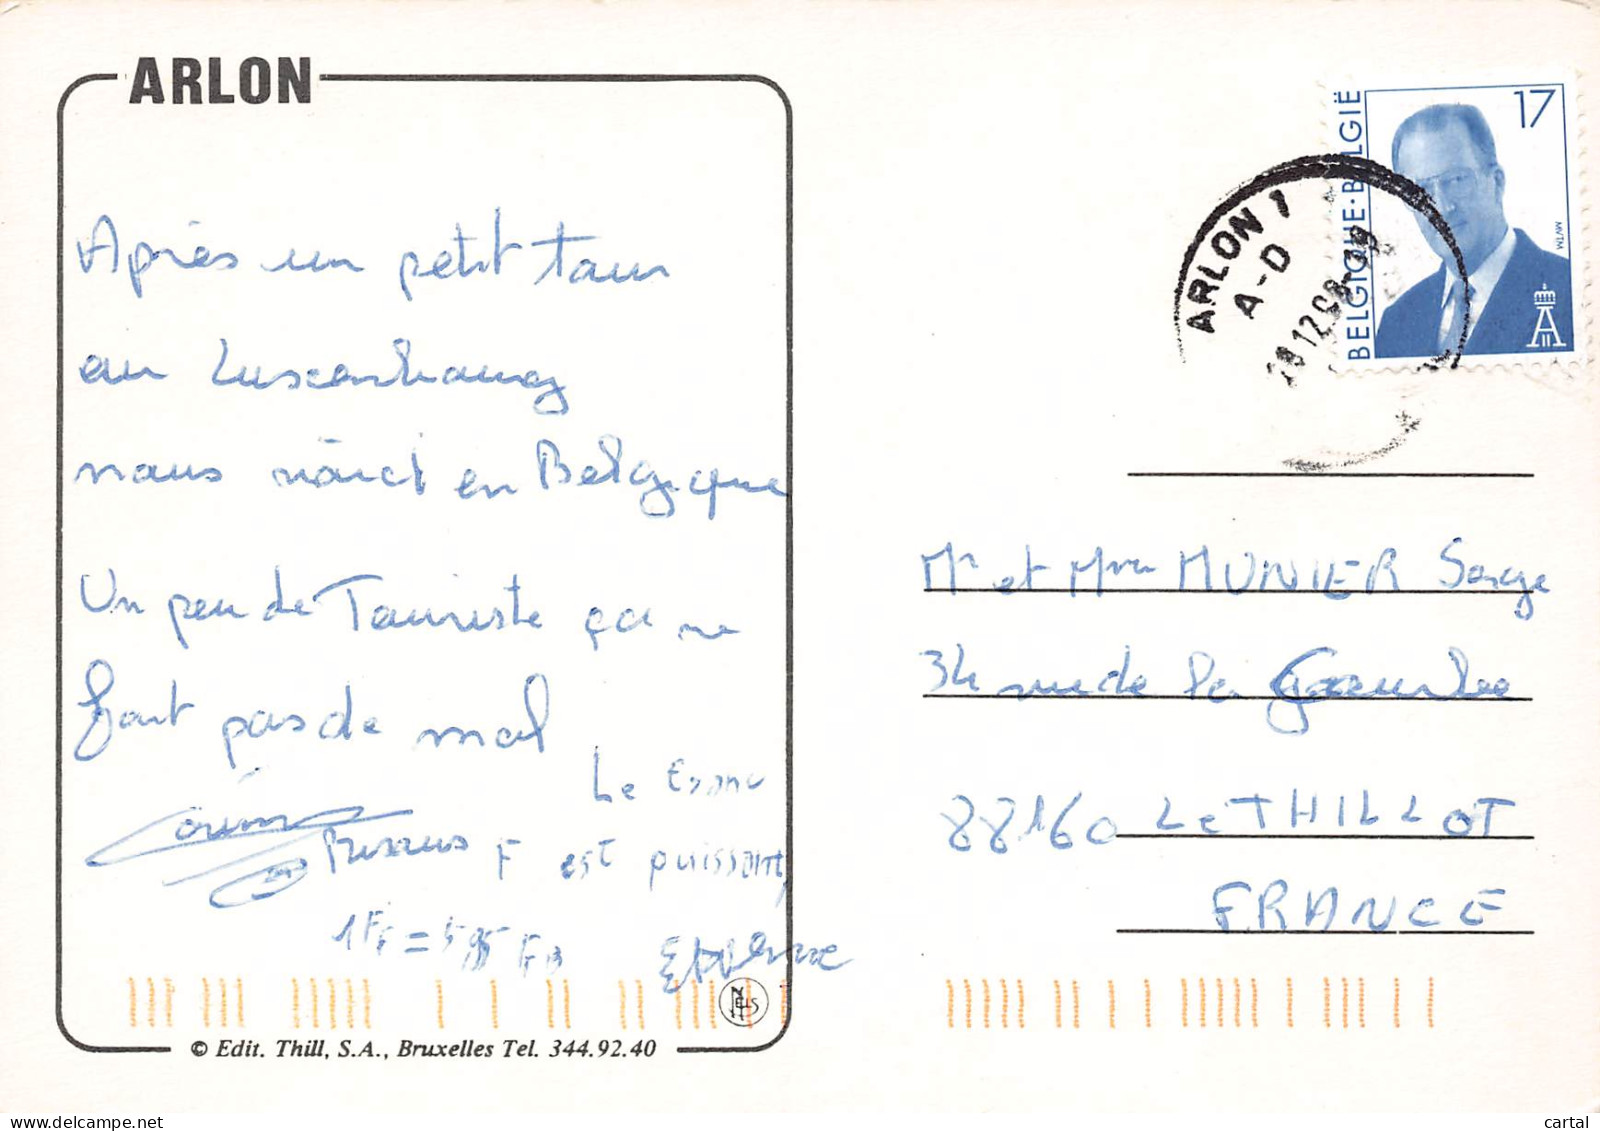 ARLON
Après un petit tour
au Luxembourg
nous voici en Belgique
Un peu de Touriste ça ne
fait pas de mal
Le Franc
F est puissant,
1 FF = 5,95 FB
© Edit. Thill, S.A., Bruxelles Tel. 344.92.40
BELGIQUE·BELGIË
17
MVTM
ARLON 1
A-D
Mr et Mme MUNIER Serge
34 rue de la
88160 LE THILLOT
FRANCE
cartal